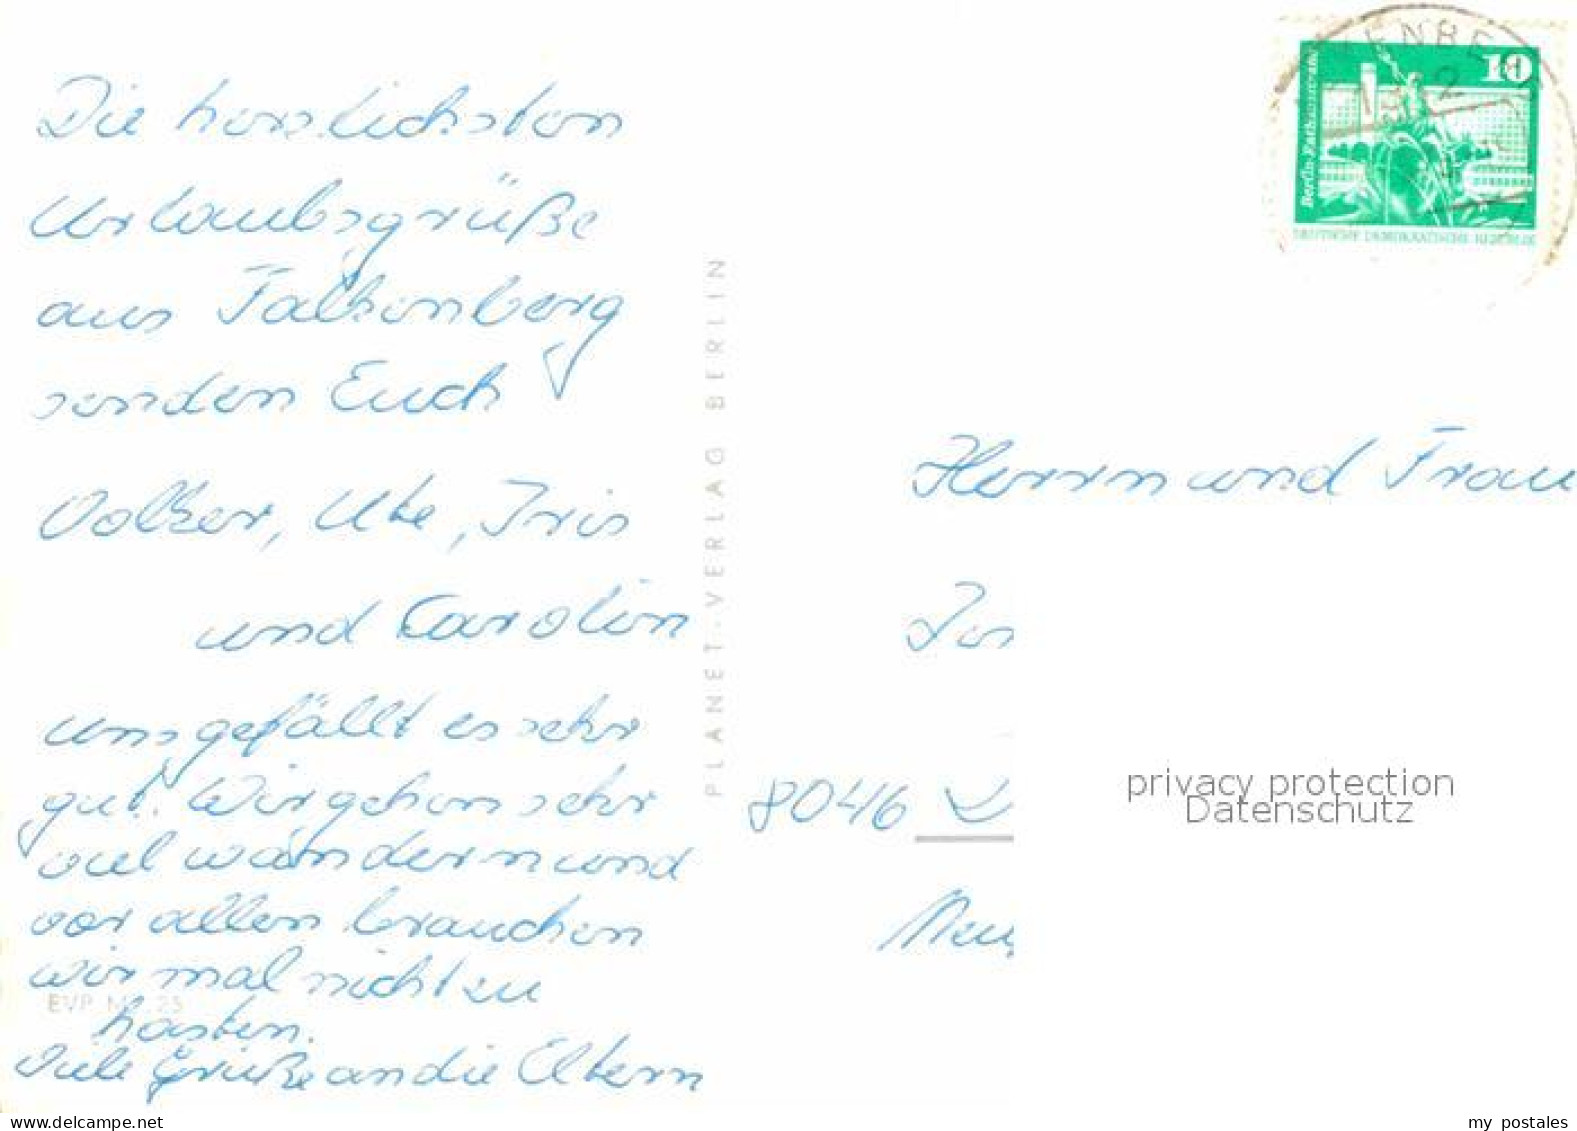 Die herzlichsten
Urlaubsgrüße
aus Falkenberg
senden Euch
Volker, Ute, Iris
und Carolin
uns gefällt es sehr
gut. Wir gehen sehr
viel wandern und
vor allen brauchen
wir mal nicht zu
hasten.
Viele Grüße an die Eltern
EVP M 0,25
PLANET-VERLAG BERLIN
10
Berlin-Rathausstraße
DEUTSCHE DEMOKRATISCHE REPUBLIK
Herrn und Frau
8046
privacy protection
Datenschutz
www.delcampe.net
my_postales